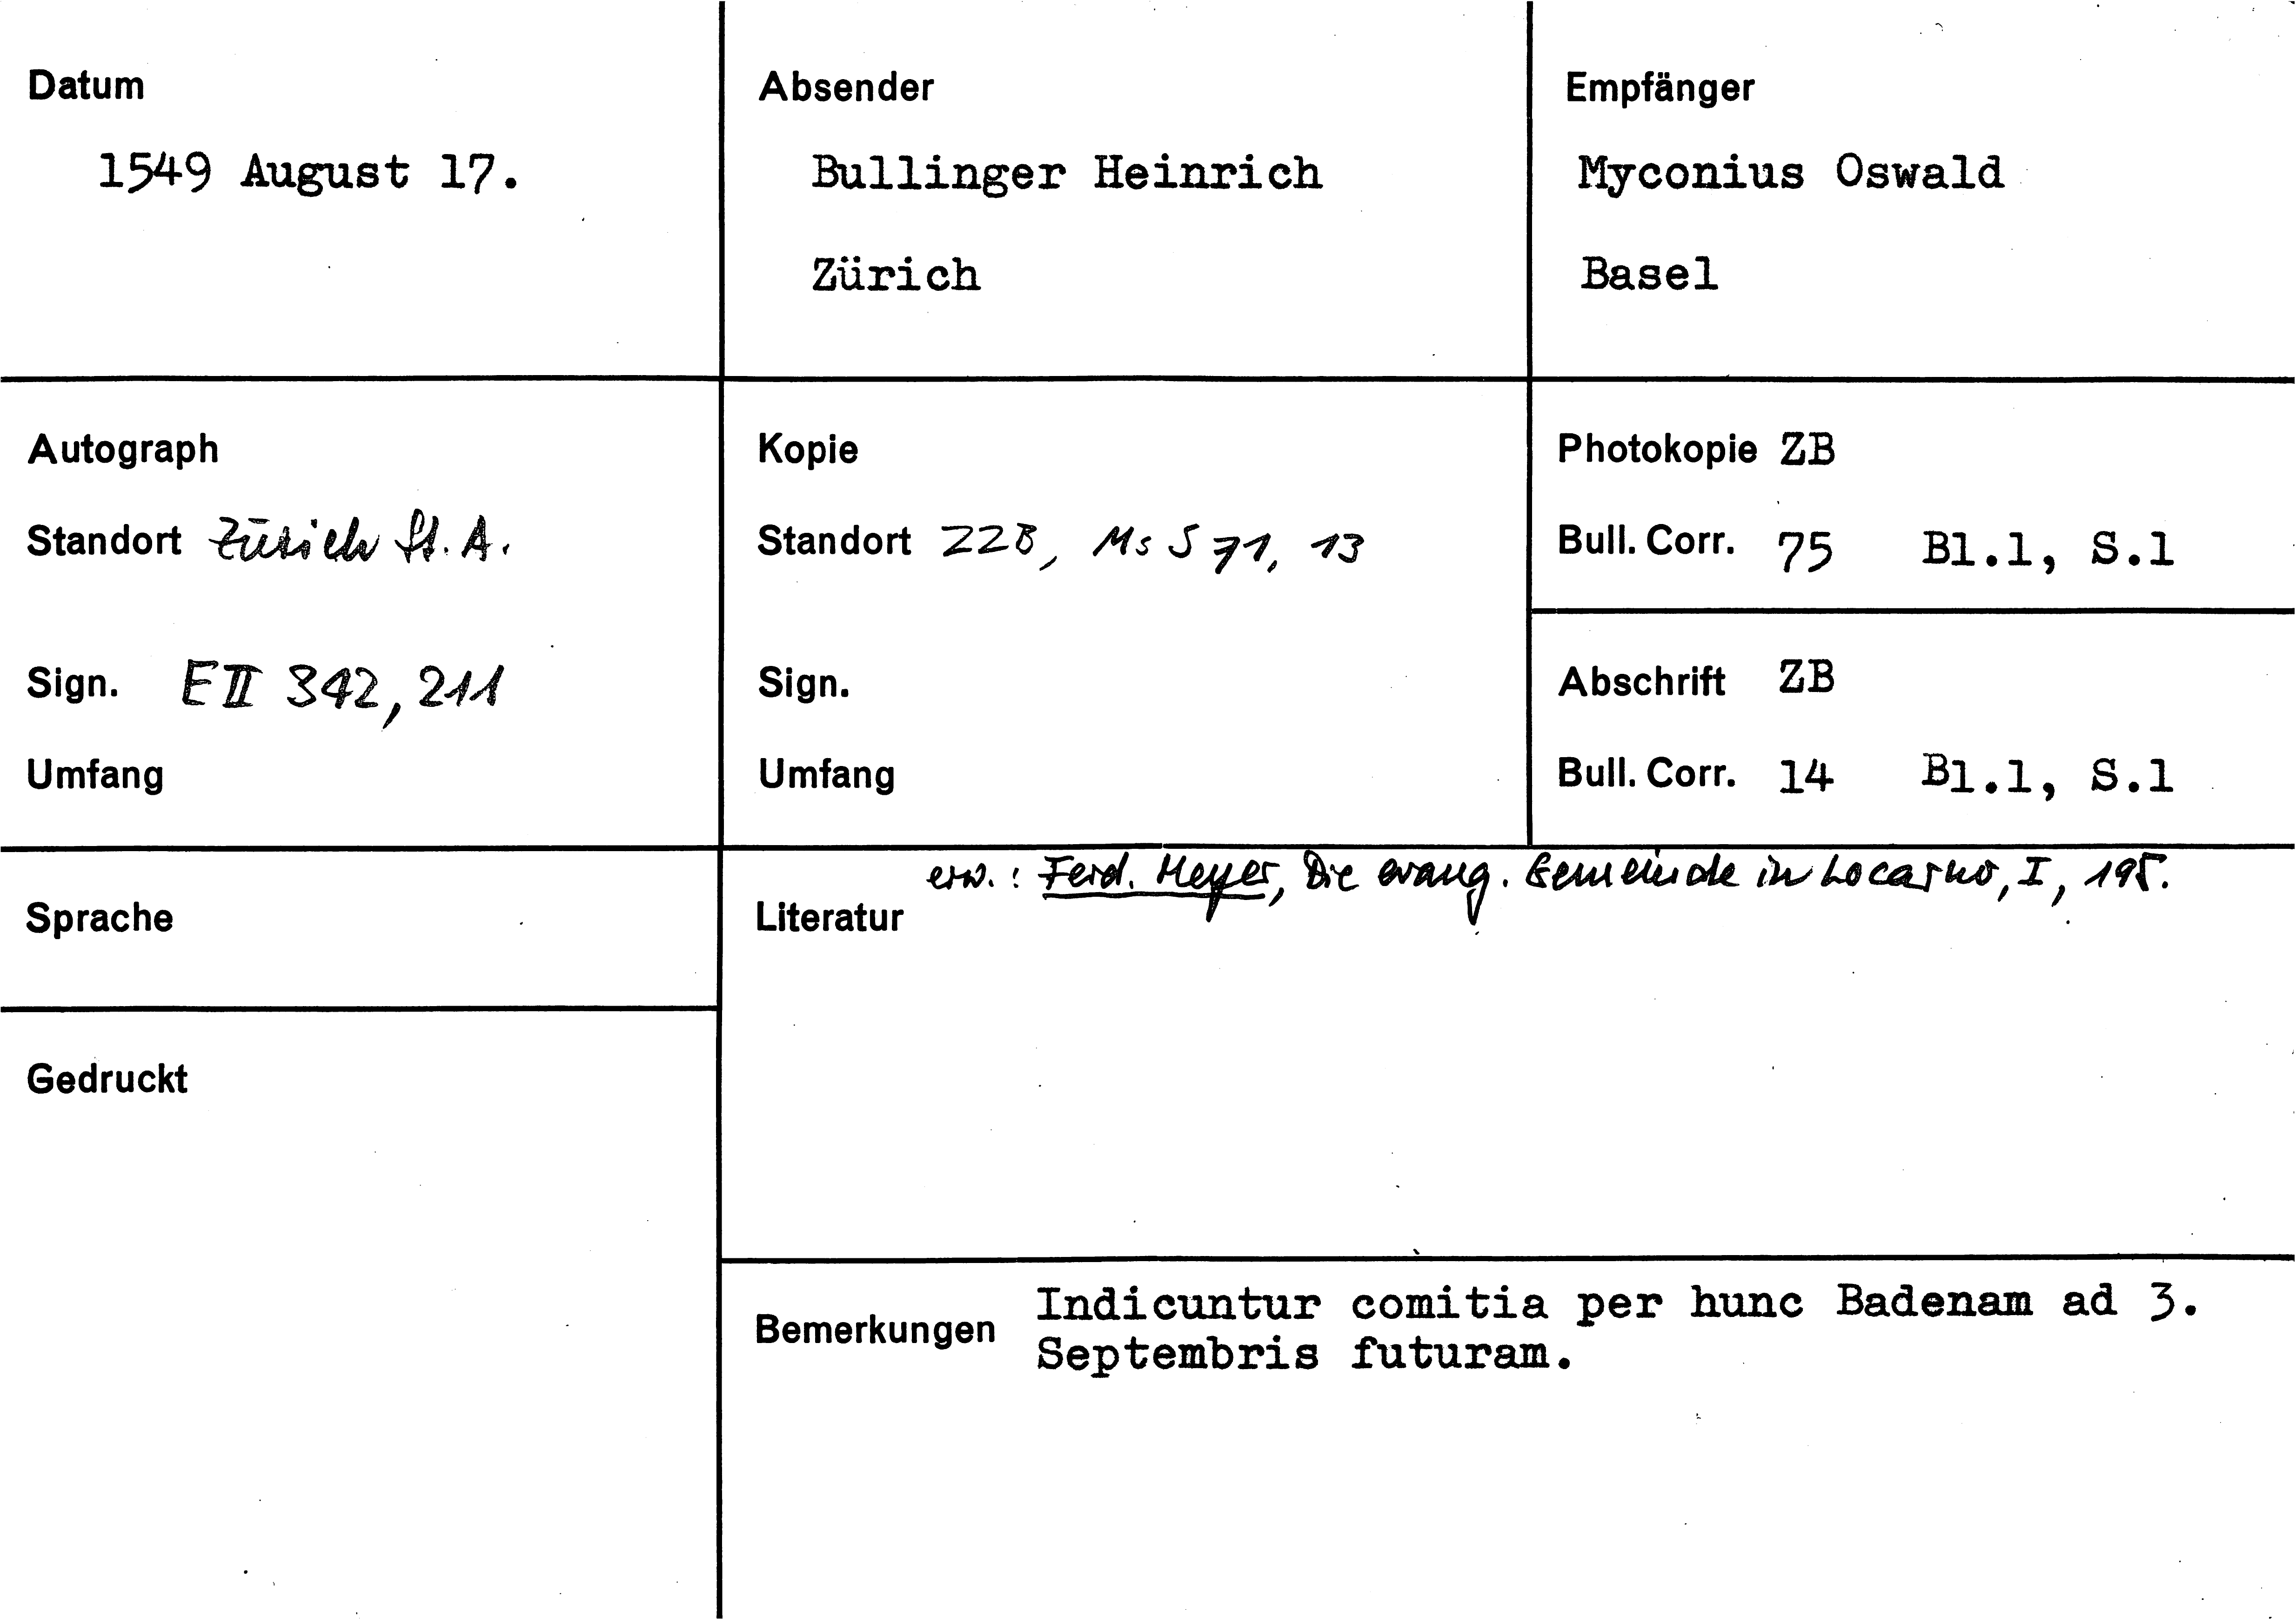 Datum
1549 August 17.
Absender
Bullinger Heinrich
Zürich
Empfänger
Myconius Oswald
Basel
Autograph
Standort Zürich St. A.
Sign. E II 342, 211
Umfang
Kopie
Standort ZZB, Ms S 71, 13
Sign.
Umfang
Photokopie ZB
Bull. Corr. 75 Bl.1, S.1
Abschrift ZB
Bull. Corr. 14 Bl.1, S.1
Sprache
Gedruckt
erw.: Ferd. Meyer, Die evang. Gemeinde in Locarno, I, 195.
Literatur
Bemerkungen Indicuntur comitia per hunc Badenam ad 3.
Septembris futuram.